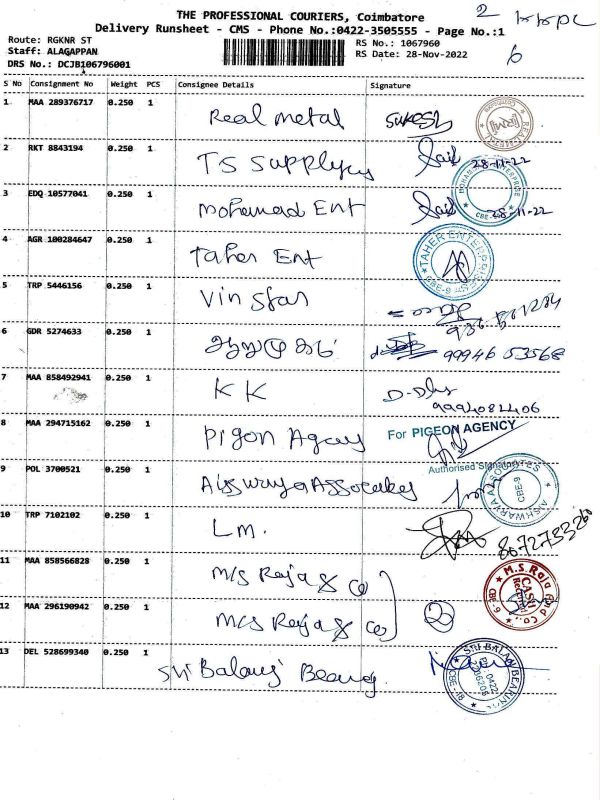 THE PROFESSIONAL COURIERS, Coimbatore
Delivery Runsheet - CMS - Phone No.:0422-3505555 - Page No.:1
2
6
Route: RGKNR ST
RS No.: 1067960
Staff: ALAGAPPAN
RS Date: 28-Nov-2022
DRS No.: DCJB106796001
S No Consignment No Weight PCS Consignee Details Signature
1 MAA 289376717 0.250 1 Real metal Sukesh
2 RKT 8843194 0.250 1 TS Supplyes Sait 28-11-22
3 EDQ 10577041 0.250 1 Mohamad Ent Sait 28-11-22
4 AGR 100284647 0.250 1 Taher Ent
TAHER ENTERPRISES
5 TRP 5446156 0.250 1 Vin Star
6 GDR 5274633 0.250 1 ஆறுமுகம் 99946 53568
7 MAA 858492941 0.250 1 KK
9994082406
8 MAA 294715162 0.250 1 Pigon Agcy
For PIGEON AGENCY
Authorised Signatory
9 POL 3700521 0.250 1 Aisswarya Assocates
AISHWARYA ASSOCIATES CBE-9
10 TRP 7102102 0.250 1 LM.
11 MAA 858566828 0.250 1 M/s Raja & Co
M.S.Raja And Co.,
CASH
12 MAA 296190942 0.250 1 M/s Raja & Co 2
13 DEL 528699340 0.250 1 Sri Balaji Bearing
SRI BALAJI BEARING